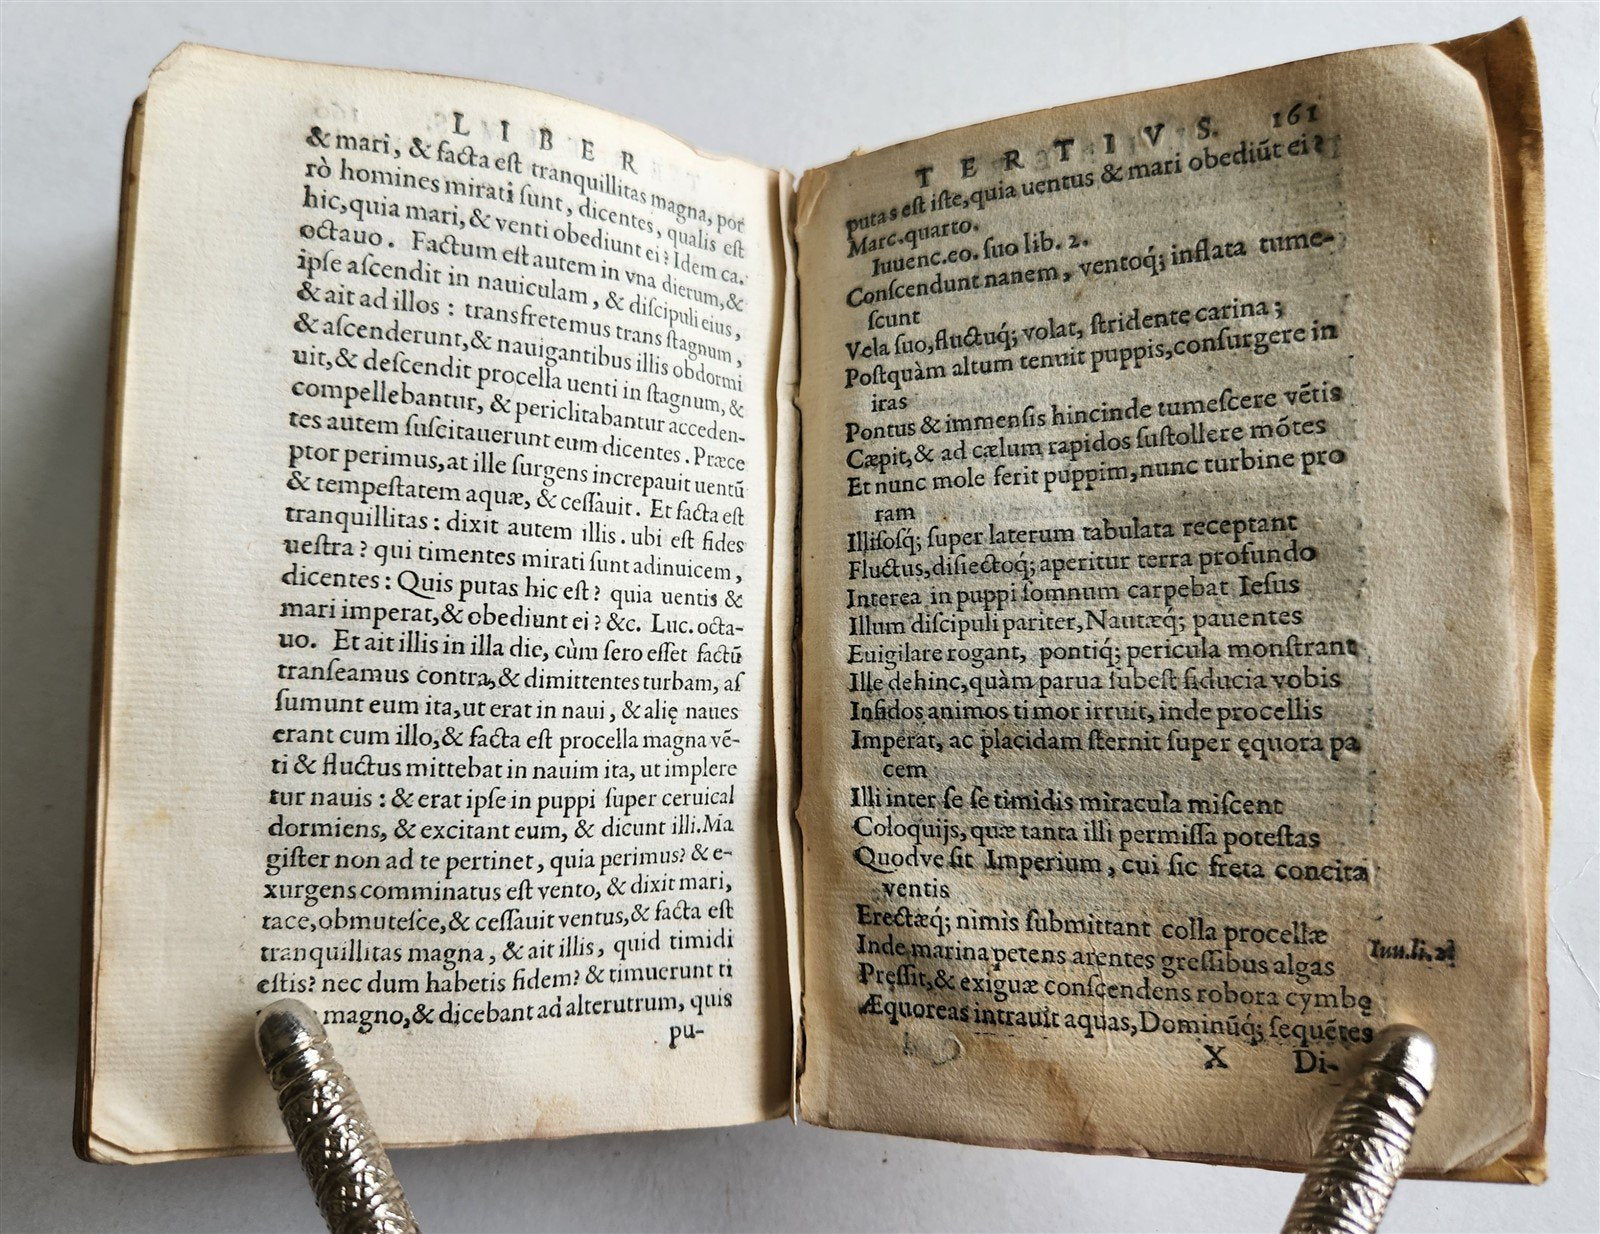 LIBER
& mari, & facta eſt tranquillitas magna, por
rò homines mirati ſunt, dicentes, qualis eſt
hic, quia mari, & venti obediunt ei? Idem ca.
octauo. Factum eſt autem in vna dierum, &
ipſe aſcendit in nauiculam, & diſcipuli eius,
& ait ad illos: transfretemus trans ſtagnum,
& aſcenderunt, & nauigantibus illis obdormi
uit, & deſcendit procella uenti in ſtagnum, &
compellebantur, & periclitabantur acceden-
tes autem ſuſcitauerunt eum dicentes. Præce
ptor perimus, at ille ſurgens increpauit uentũ
& tempeſtatem aquæ, & ceſſauit. Et facta eſt
tranquillitas: dixit autem illis. ubi eſt fides
ueſtra? qui timentes mirati ſunt adinuicem,
dicentes: Quis putas hic eſt? quia uentis &
mari imperat, & obediunt ei? &c. Luc. octa-
uo. Et ait illis in illa die, cùm ſero eſſet factũ
tranſeamus contra, & dimittentes turbam, aſ
ſumunt eum ita, ut erat in naui, & alię naues
erant cum illo, & facta eſt procella magna vẽ-
ti & fluctus mittebat in nauim ita, ut implere
tur nauis: & erat ipſe in puppi ſuper ceruical
dormiens, & excitant eum, & dicunt illi. Ma
giſter non ad te pertinet, quia perimus? & e-
xurgens comminatus eſt vento, & dixit mari,
tace, obmuteſce, & ceſſauit ventus, & facta eſt
tranquillitas magna, & ait illis, quid timidi
eſtis? nec dum habetis fidem? & timuerunt ti
magno, & dicebant ad alterutrum, quis
pu-
TERTIVS. 161
putas eſt iſte, quia uentus & mari obediũt ei?
Marc. quarto.
Iuuenc. eo. ſuo lib. 2.
Conſcendunt nanem, ventoq́; inflata tume-
ſcunt
Vela ſuo, fluctuq́; volat, ſtridente carina;
Poſtquàm altum tenuit puppis, conſurgere in
iras
Pontus & immenſis hincinde tumeſcere vẽtis
Cæpit, & ad cælum rapidos ſuſtollere mõtes
Et nunc mole ferit puppim, nunc turbine pro
ram
Illiſoſq́; ſuper laterum tabulata receptant
Fluctus, diſiectoq́; aperitur terra profundo
Interea in puppi ſomnum carpebat Ieſus
Illum diſcipuli pariter, Nautæq́; pauentes
Euigilare rogant, pontiq́; pericula monſtrant
Ille dehinc, quàm parua ſubeſt fiducia vobis
Infidos animos timor irruit, inde procellis
Imperat, ac placidam ſternit ſuper ęquora pa
cem
Illi inter ſe ſe timidis miracula miſcent
Coloquijs, quæ tanta illi permiſſa poteſtas
Quodve ſit Imperium, cui ſic freta concita
ventis
Erectæq́; nimis ſubmittant colla procellæ
Inde marina petens arentes greſſibus algas Iuu. li. 2
Preſſit, & exiguæ conſcendens robora cymbę
Æquoreas intrauit aquas, Dominũq́; ſequẽtes
X Di-